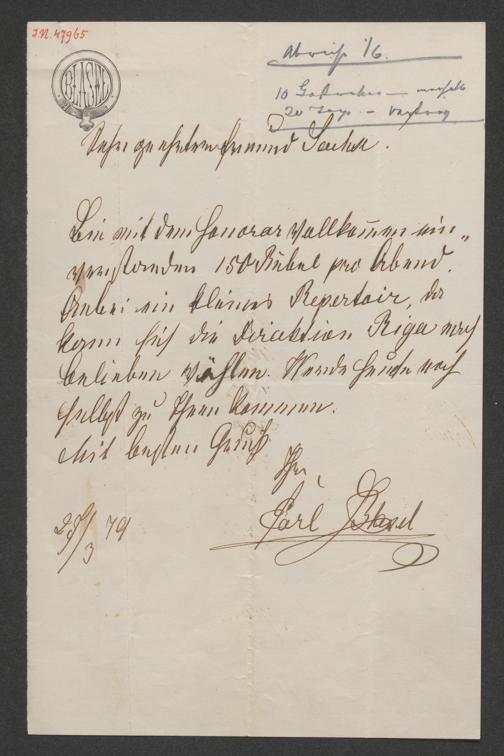 I.N. 47965
BLASEL
1/6.
10
20
Sehr geehrter Freund Sachse.
Bin mit dem Honorar vollkommen ein-
verstanden 150 Rubel pro Abend.
Anbei ein kleines Repertoir, da
kann sich die Direktion Riga nach
belieben wählen. Werde heute noch
selbst zu Ihnen kommen.
Mit besten Gruß
Ihr
Carl Blasel
29/3 79